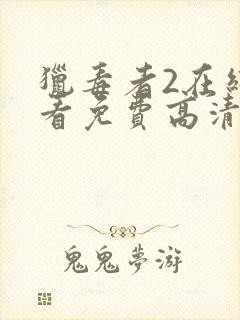 獵毒者2在線
看免費高清
鬼鬼夢游